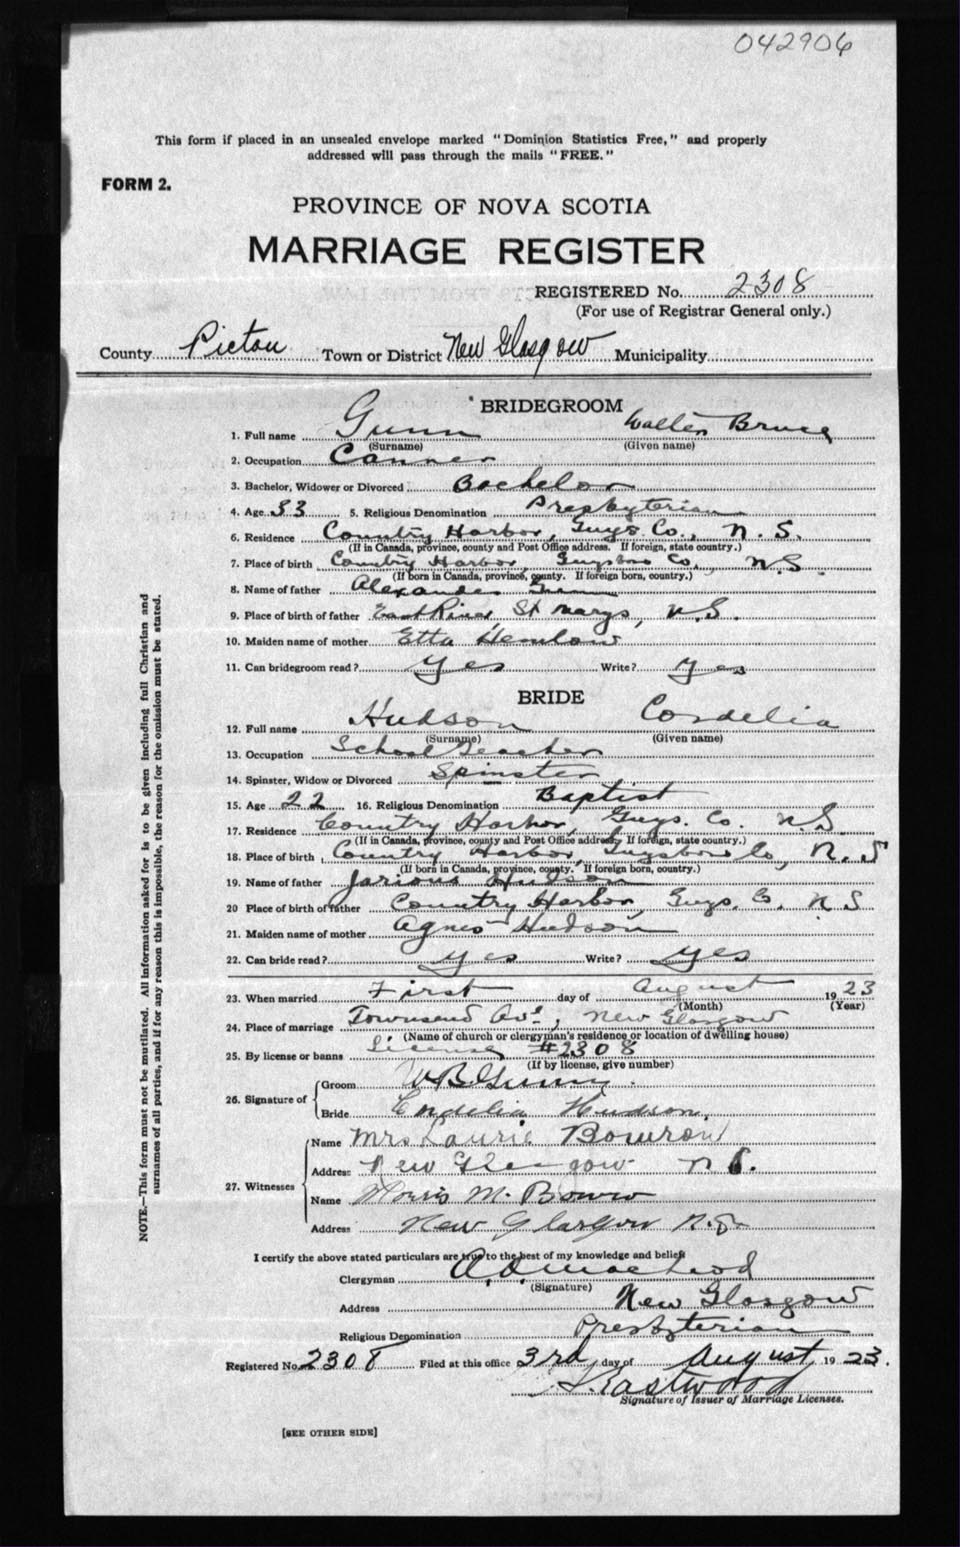 042906
This form if placed in an unsealed envelope marked "Dominion Statistics Free," and properly
addressed will pass through the mails "FREE."
FORM 2.
PROVINCE OF NOVA SCOTIA
MARRIAGE REGISTER
REGISTERED No. 2308
(For use of Registrar General only.)
County Pictou Town or District New Glasgow Municipality
BRIDEGROOM
1. Full name Gunn Walter Bruce
(Surname) (Given name)
2. Occupation Canner
3. Bachelor, Widower or Divorced Bachelor
4. Age 33 5. Religious Denomination Presbyterian
6. Residence Country Harbor, Guys. Co., N.S.
(If in Canada, province, county and Post Office address. If foreign, state country.)
7. Place of birth Country Harbor, Guysboro Co., N.S.
(If born in Canada, province, county. If foreign born, country.)
8. Name of father Alexander Gunn
9. Place of birth of father East River, St Marys, N.S.
10. Maiden name of mother Etta Hemlow
11. Can bridegroom read? Yes Write? Yes
BRIDE
12. Full name Hudson Cordelia
(Surname) (Given name)
13. Occupation School Teacher
14. Spinster, Widow or Divorced Spinster
15. Age 22 16. Religious Denomination Baptist
17. Residence Country Harbor, Guys. Co. N.S.
(If in Canada, province, county and Post Office address. If foreign, state country.)
18. Place of birth Country Harbor, Guysboro Co, N.S
(If born in Canada, province, county. If foreign born, country.)
19. Name of father Hudson
20 Place of birth of father Country Harbor, Guys. Co. N S
21. Maiden name of mother Agnes Hudson
22. Can bride read? Yes Write? Yes
23. When married First day of August 1923
(Month) (Year)
24. Place of marriage Townsend Ave, New Glasgow
(Name of church or clergyman's residence or location of dwelling house)
25. By license or banns License #2308
(If by license, give number)
26. Signature of
Groom W B Gunn
Bride Cordelia Hudson.
27. Witnesses
Name Mrs Laurie Bowron
Address New Glasgow N S.
Name M.
Address New Glasgow N.S.
I certify the above stated particulars are true to the best of my knowledge and belief
Clergyman A. D. MacLeod
(Signature)
Address New Glasgow
Religious Denomination Presbyterian
Registered No. 2308 Filed at this office 3rd day of August, 1923.
Eastwood
Signature of Issuer of Marriage Licenses.
[SEE OTHER SIDE]
NOTE.—This form must not be mutilated. All information asked for is to be given including full Christian and
surnames of all parties, and if for any reason this is impossible, the reason for the omission must be stated.